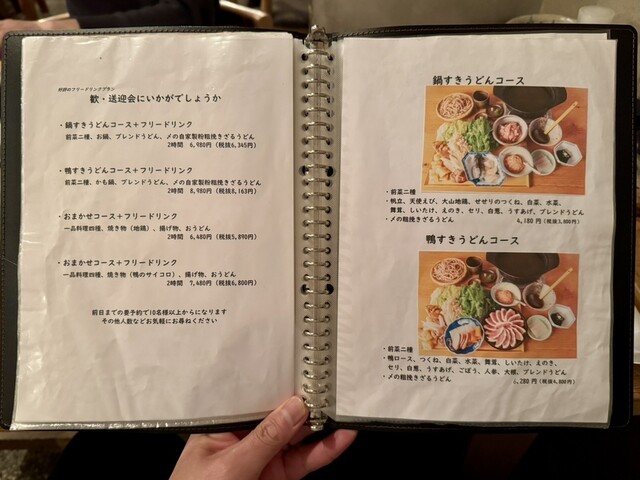 好評のフリードリンクプラン
歓・送迎会にいかがでしょうか
・鍋すきうどんコース＋フリードリンク
前菜二種、お鍋、ブレンドうどん、〆の自家製粉粗挽きざるうどん
2時間 6,980円（税抜6,345円）
・鴨すきうどんコース＋フリードリンク
前菜二種、かも鍋、ブレンドうどん、〆の自家製粉粗挽きざるうどん
2時間 8,980円（税抜8,163円）
・おまかせコース＋フリードリンク
一品料理四種、焼き物（地鶏）、揚げ物、おうどん
2時間 6,480円（税抜5,890円）
・おまかせコース＋フリードリンク
一品料理四種、焼き物（鴨のサイコロ）、揚げ物、おうどん
2時間 7,480円（税抜6,800円）
前日までの要予約で10名様以上からになります
その他人数などお気軽にお尋ねください
鍋すきうどんコース
・前菜二種
・帆立、天使えび、大山地鶏、せせりのつくね、白菜、水菜、
舞茸、しいたけ、えのき、セリ、白葱、うすあげ、ブレンドうどん
・〆の粗挽きざるうどん 4,180円（税抜3,800円）
鴨すきうどんコース
・前菜二種
・鴨ロース、つくね、白菜、水菜、舞茸、しいたけ、えのき、
セリ、白葱、うすあげ、ごぼう、人参、大根、ブレンドうどん
・〆の粗挽きざるうどん 5,280円（税抜4,800円）